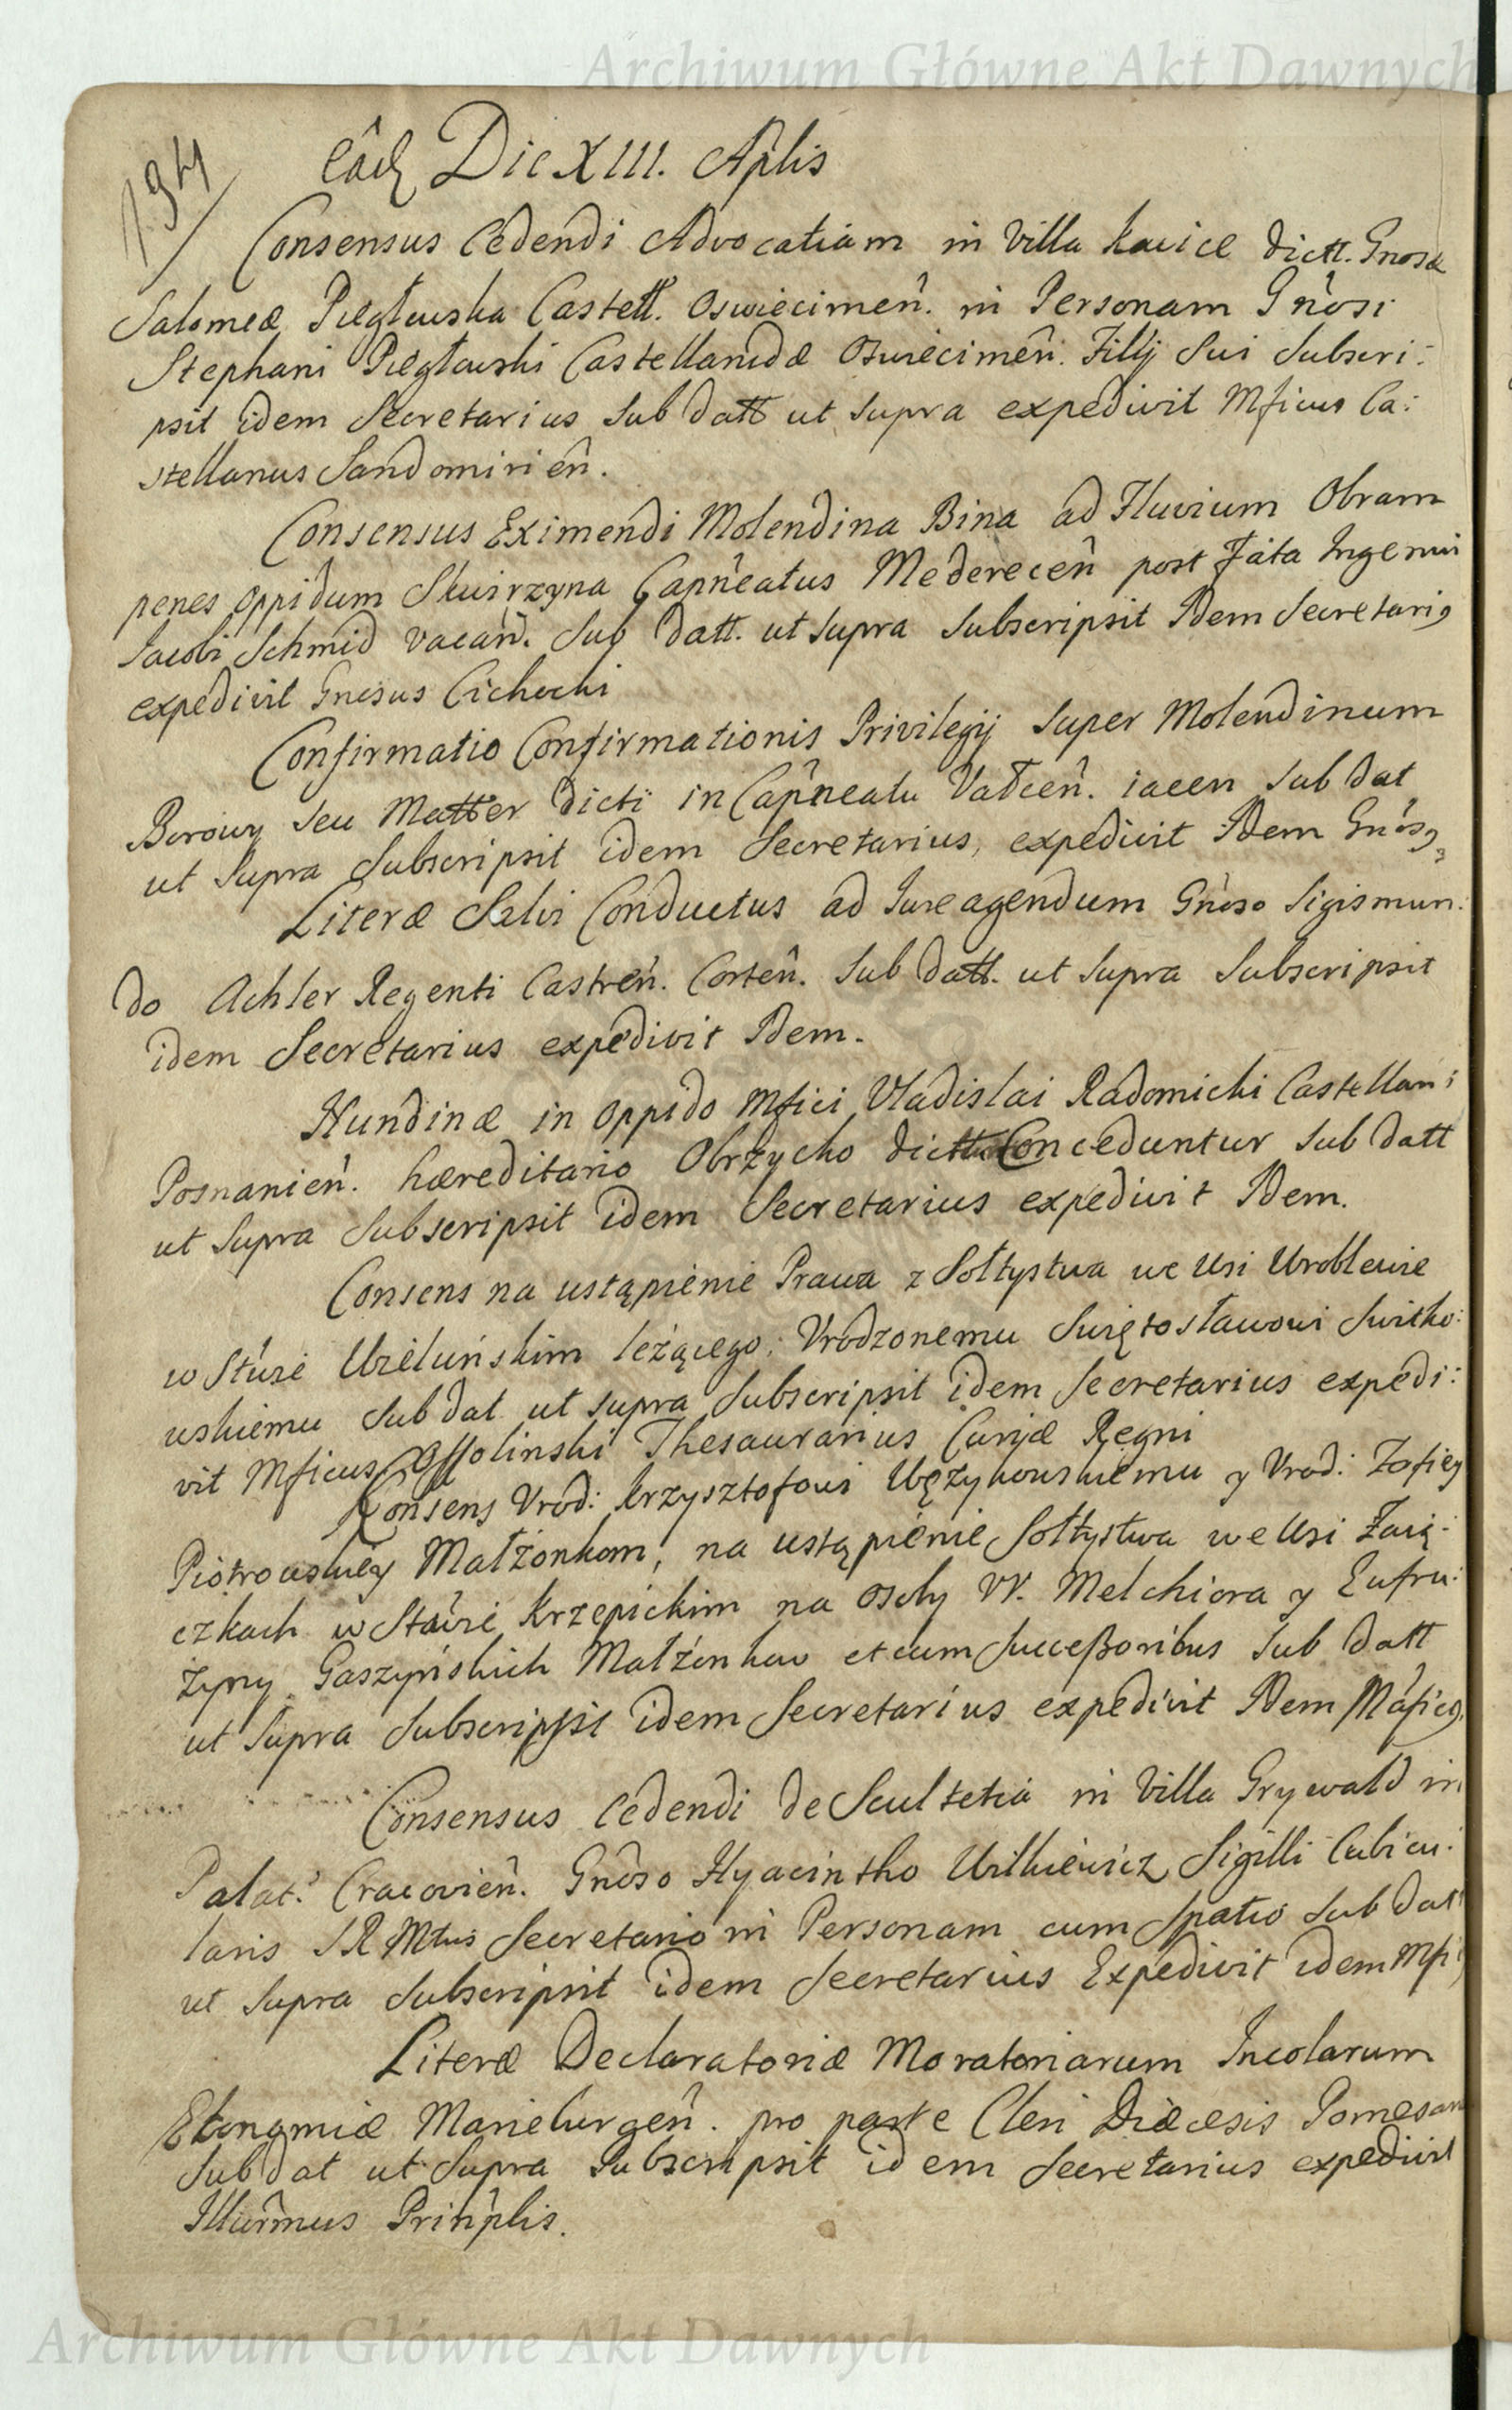 Archiwum Główne Akt Dawnych
194
Eâd Die XIII. Aplis
Consensus Cedendi Advocatiam in Villa Kacice dictt. Gnosæ
Salomeæ Pęgłowska Castell. Oswiecimeñ. in Personam Gnosi
Stephani Pęgłowski Castellanidæ Oswiecimeñ. Filij Sui Subscri:
psit idem Secretarius Sub datt ut Supra expedivit Mficus Ca:
stellanus Sandomirieñ.
Consensus Eximendi Molendina Bina ad Fluvium Obram
penes oppidum Skwirzyna Capñeatus Medereceñ post Fata Ingenui
Jacobi Schmid vacañ. Sub datt. ut Supra Subscripsit Idem Secretari9
expedivit Gnosus Cichocki
Confirmatio Confirmationis Privilegij Super Molendinum
Borowy Seu Matter dicti in Capñeatu Valceñ. iacen Sub dat
ut Supra Subscripsit idem Secretarius, expedivit Idem Gnos9
Literæ Salvi Conductus ad Jure agendum Gnoso Sigismun:
do Achler Regenti Castreñ. Corseñ. Sub datt. ut Supra Subscripsit
idem Secretarius expedivit Idem.
Nundinæ in oppido Mfici Vladislai Radomicki Castellani
Posnanieñ. hæreditario Obrzycko dictt Conceduntur Sub datt
ut Supra Subscripsit idem Secretarius expedivit Idem.
Consens na ustąpienie Prawa z Sołtystwa we Wsi Wroblewie
w Stwie Wieluńskim leżącego, Vrodzonemu Swiętosławowi Switko:
wskiemu Sub dat ut supra Subscripsit idem Secretarius expedi:
vit Mficus Ossolinski Thesaurarius Curiæ Regni
Consens Vrod: Krzysztofowi Wężykowskiemu y Vrod: Zofiey
Piotrowskiey Małżonkom, na ustąpienie Sołtystwa we Wsi Zaią:
czkach w Stwie Krzepickim na osoby VV. Melchiora y Eufro:
zyny Gaszyńskich Małżonkow et cum Successoribus Sub datt
ut Supra Subscripsit idem Secretarius expedivit Idem Mafic9
Consensus Cedendi de Scultetia in Villa Grywald in
Palat. Cracovieñ. Gnoso Hyacintho Witkiewicz Sigilli Cubicu:
laris S R Mtus Secretario in Personam cum Spatio Sub dat
ut Supra Subscripsit idem Secretarius Expedivit idem Mfi
Literæ Declaratoriæ Moratoriarum Incolarum
Ekonomiæ Marieburgeñ. pro parte Cleri Diæcesis Pomesan
Sub dat ut Supra Subscripsit idem Secretarius expedivit
Illurmus Prinplis.
Archiwum Główne Akt Dawnych